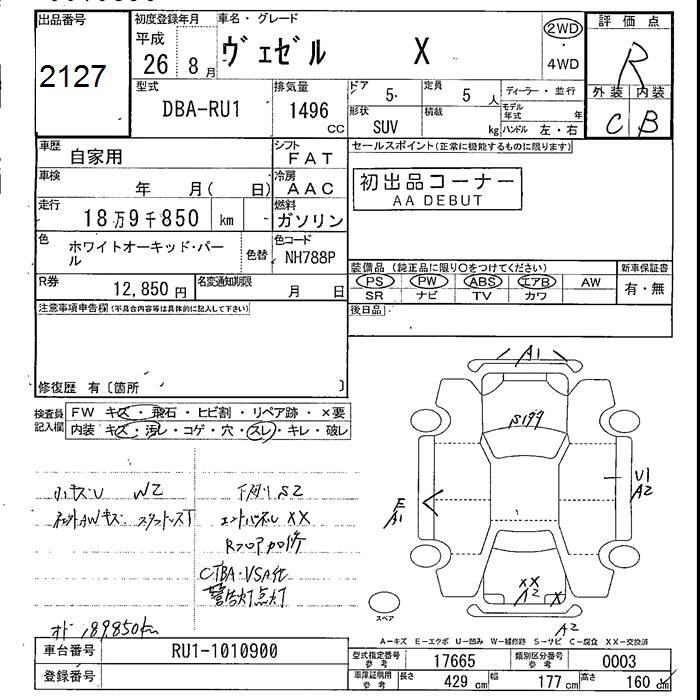 出品番号
2127
初度登録年月
平成
26 8月
車名・グレード
ヴェゼル X
2WD
4WD
評価点
R
外装 内装
C B
型式
DBA-RU1
排気量
1496
CC
ドア 5
定員 5人
ディーラー・並行
形状
SUV
積載
kg
モデル年式 年
ハンドル 左・右
車歴
自家用
シフト
FAT
セールスポイント(正常に機能するものに限ります)
初出品コーナー
AA DEBUT
車検
年 月( 日)
冷房
AAC
走行
18万9千850 km
燃料
ガソリン
色
ホワイトオーキッド・パール
色替
色コード
NH788P
R券
12,850円
名変通知期限
月 日
装備品(純正品に限り○をつけてください)
PS PW ABS エアB AW
SR ナビ TV カワ
新車保証書
有・無
後日品
注意事項申告欄(不具合内容等は具体的に記入して下さい)
修復歴 有〔箇所 〕
検査員記入欄
FW キズ・飛石・ヒビ割・リペア跡・×要
内装 キズ・汚レ・コゲ・穴・スレ・キレ・破レ
小キズU W2
下廻りS2
エンドパネルXX
Rフロア加修
警告灯点灯
オド 189,850km
A1
S199
E
A1
U1
A2
XX
A2 X
A2
スペア
A-キズ E-エクボ U-凹み W-補修跡 S-サビ C-腐食 XX-交換済
車台番号
RU1-1010900
登録番号
型式指定番号 参考
17665
類別区分番号 参考
0003
車庫証明用 参考
長さ 429cm 幅 177cm 高さ 160cm